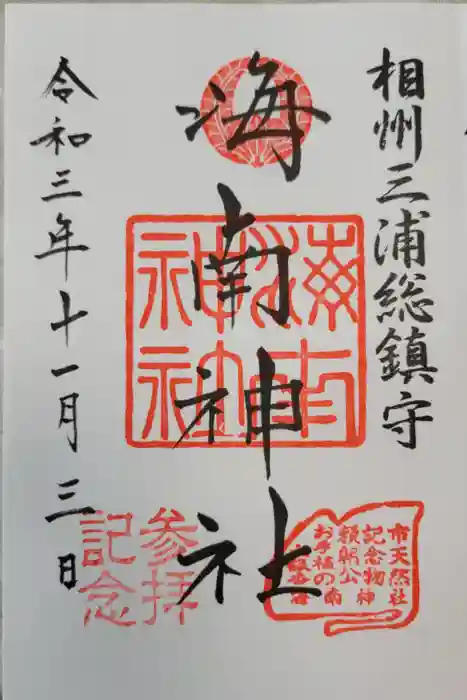 相州三浦総鎮守
海南神社
令和三年十一月三日
海南神社
参拝
記念
市天然社
記念物神
頼朝公南
お手植の